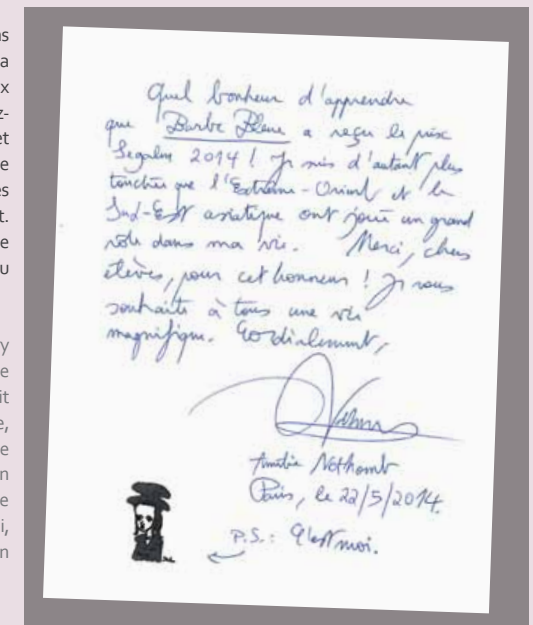 Quel bonheur d'apprendre
que Barbe Bleue a reçu le prix
Segalen 2014 ! Je suis d'autant plus
touchée que l'Extrême-Orient et le
Sud-Est asiatique ont joué un grand
rôle dans ma vie. Merci, chers
élèves, pour cet honneur ! Je vous
souhaite à tous une vie
magnifique. Cordialement,
Amélie Nothomb
Paris, le 22/5/2014.
P.S. : C'est moi.